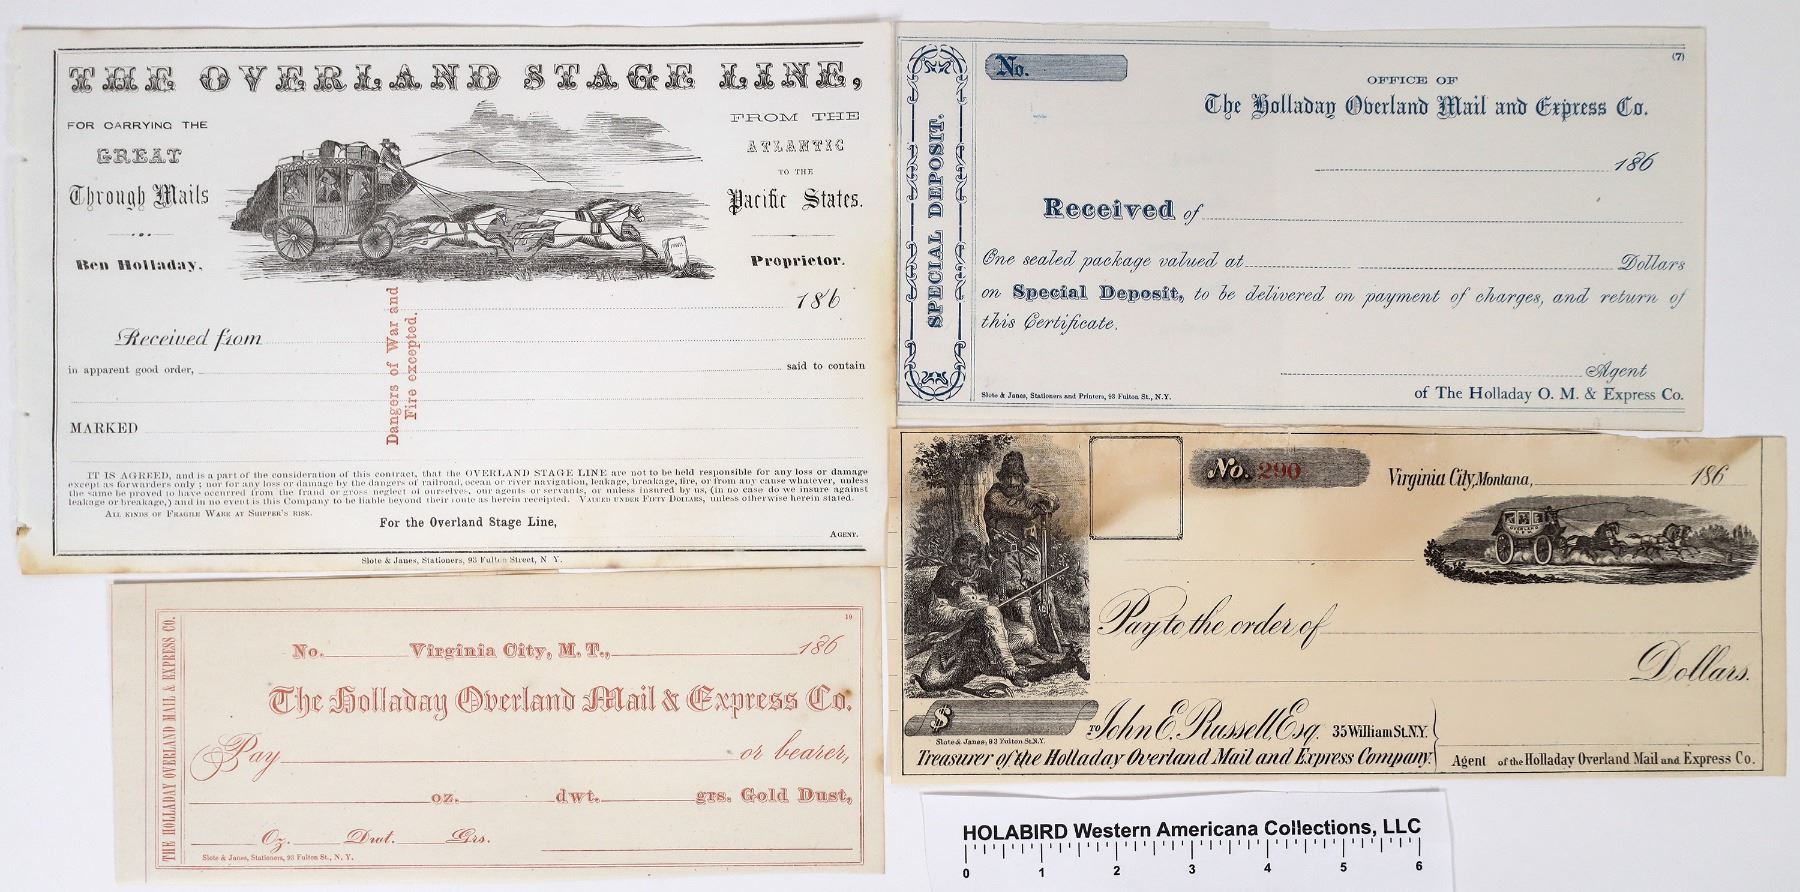 THE OVERLAND STAGE LINE,
FOR CARRYING THE
GREAT
Through Mails
Ben Holladay,
FROM THE
ATLANTIC
TO THE
Pacific States.
Proprietor.
186
Received from
in apparent good order, said to contain
MARKED
Dangers of War and
Fire excepted.
IT IS AGREED, and is a part of the consideration of this contract, that the OVERLAND STAGE LINE are not to be held responsible for any loss or damage
except as forwarders only; nor for any loss or damage by the dangers of railroad, ocean or river navigation, leakage, breakage, fire, or from any cause whatever, unless
the same be proved to have occurred from the fraud or gross neglect of ourselves, our agents or servants, or unless insured by us, (in no case do we insure against
leakage or breakage,) and in no event is this Company to be liable beyond their route as herein receipted. VALUED UNDER FIFTY DOLLARS, unless otherwise herein stated.
ALL KINDS OF FRAGILE WARE AT SHIPPER'S RISK.
For the Overland Stage Line,
AGENT.
Slote & Janes, Stationers, 93 Fulton Street, N Y.
(7)
No.
SPECIAL DEPOSIT.
OFFICE OF
The Holladay Overland Mail and Express Co.
186
Received of
One sealed package valued at Dollars
on Special Deposit, to be delivered on payment of charges, and return of
this Certificate.
Agent
of The Holladay O. M. & Express Co.
Slote & Janes, Stationers and Printers, 93 Fulton St., N.Y.
THE HOLLADAY OVERLAND MAIL & EXPRESS CO.
19
No. Virginia City, M. T., 186
The Holladay Overland Mail & Express Co.
Pay or bearer,
oz. dwt. grs. Gold Dust,
Oz. Dwt. Grs.
Slote & Janes, Stationers, 93 Fulton St., N. Y.
No. 290
Virginia City, Montana, 186
OVERLAND
Pay to the order of
Dollars.
$
Slote & Janes, 93 Fulton St. N.Y.
TO John E. Russell, Esq. 35 William St. N.Y.
Treasurer of the Holladay Overland Mail and Express Company.
Agent of the Holladay Overland Mail and Express Co.
HOLABIRD Western Americana Collections, LLC
0 1 2 3 4 5 6